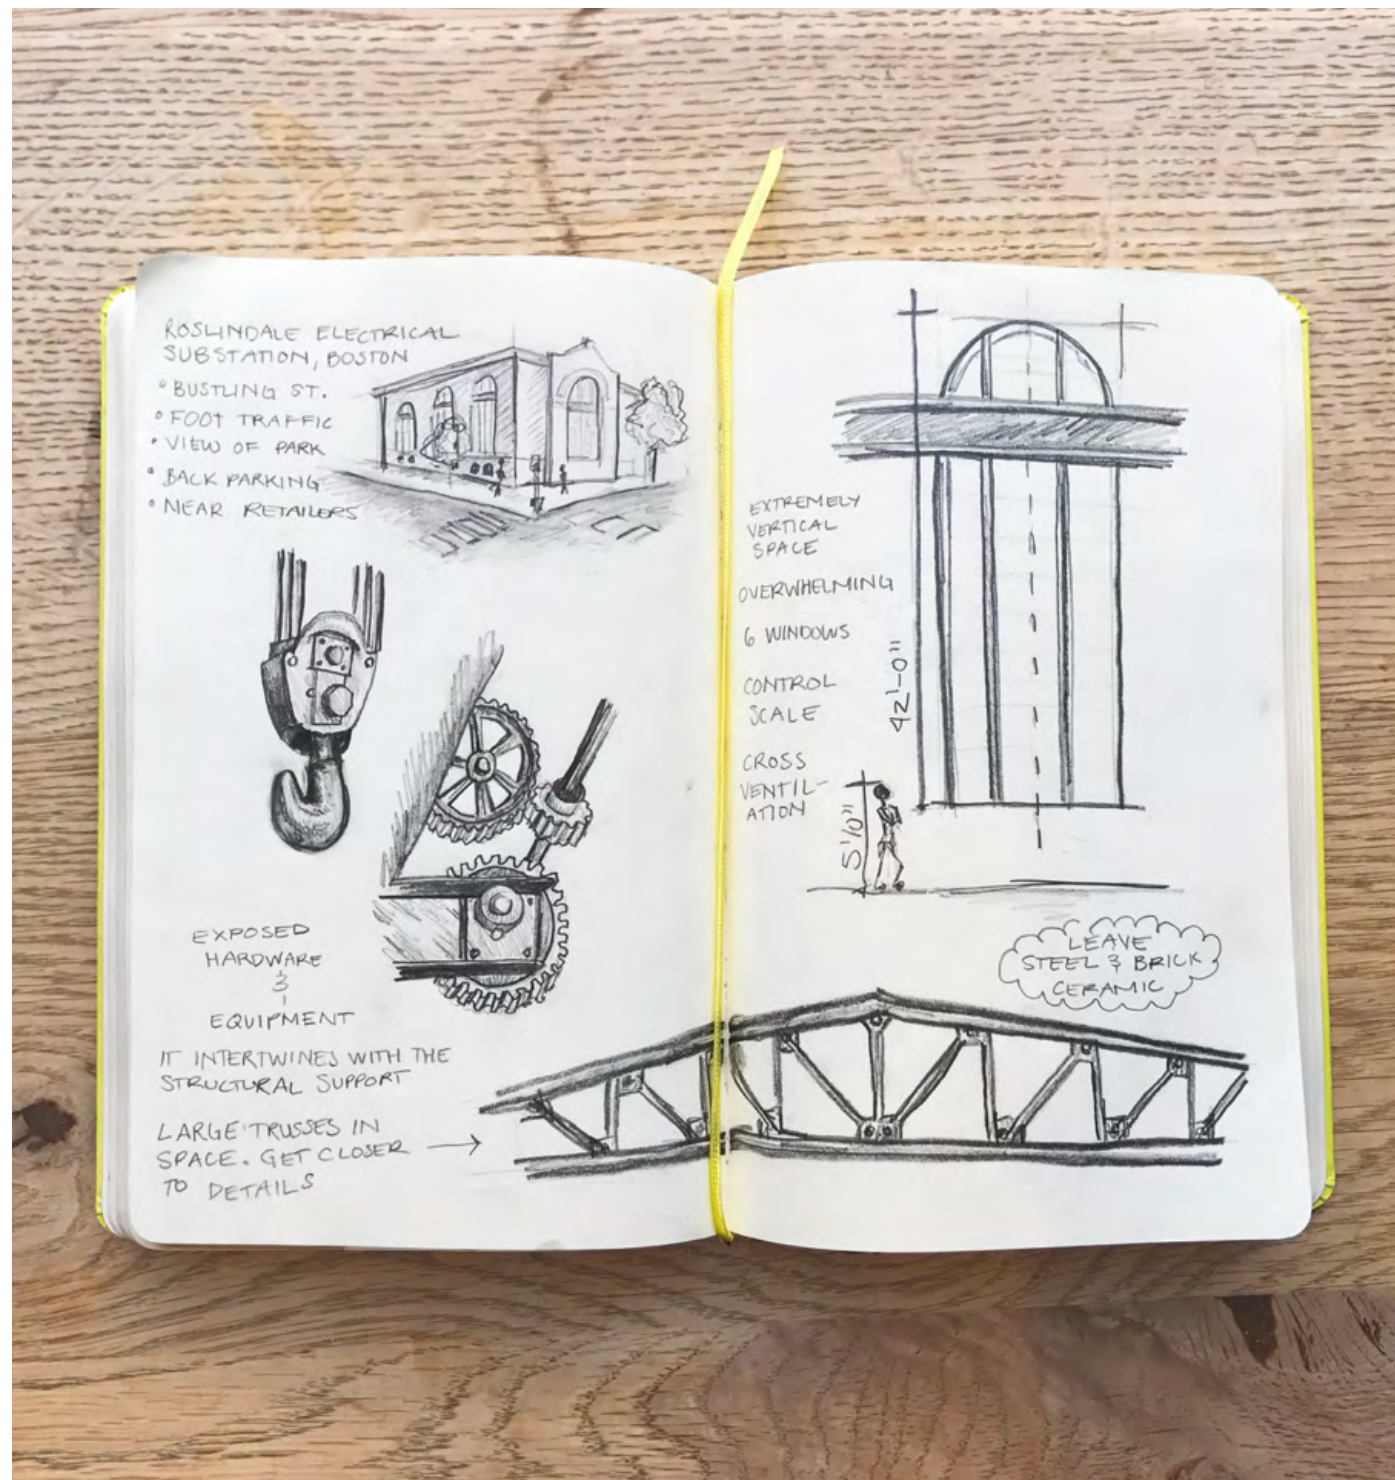 ROSLINDALE ELECTRICAL
SUBSTATION, BOSTON
° BUSTLING ST.
° FOOT TRAFFIC
• VIEW OF PARK
• BACK PARKING
• NEAR RETAILERS
EXPOSED
HARDWARE
&
EQUIPMENT
IT INTERTWINES WITH THE
STRUCTURAL SUPPORT
LARGE TRUSSES IN →
SPACE. GET CLOSER
TO DETAILS
EXTREMELY
VERTICAL
SPACE
OVERWHELMING
6 WINDOWS
CONTROL
SCALE
CROSS
VENTIL-
ATION
42'-0"
5'10"
LEAVE
STEEL & BRICK
CERAMIC